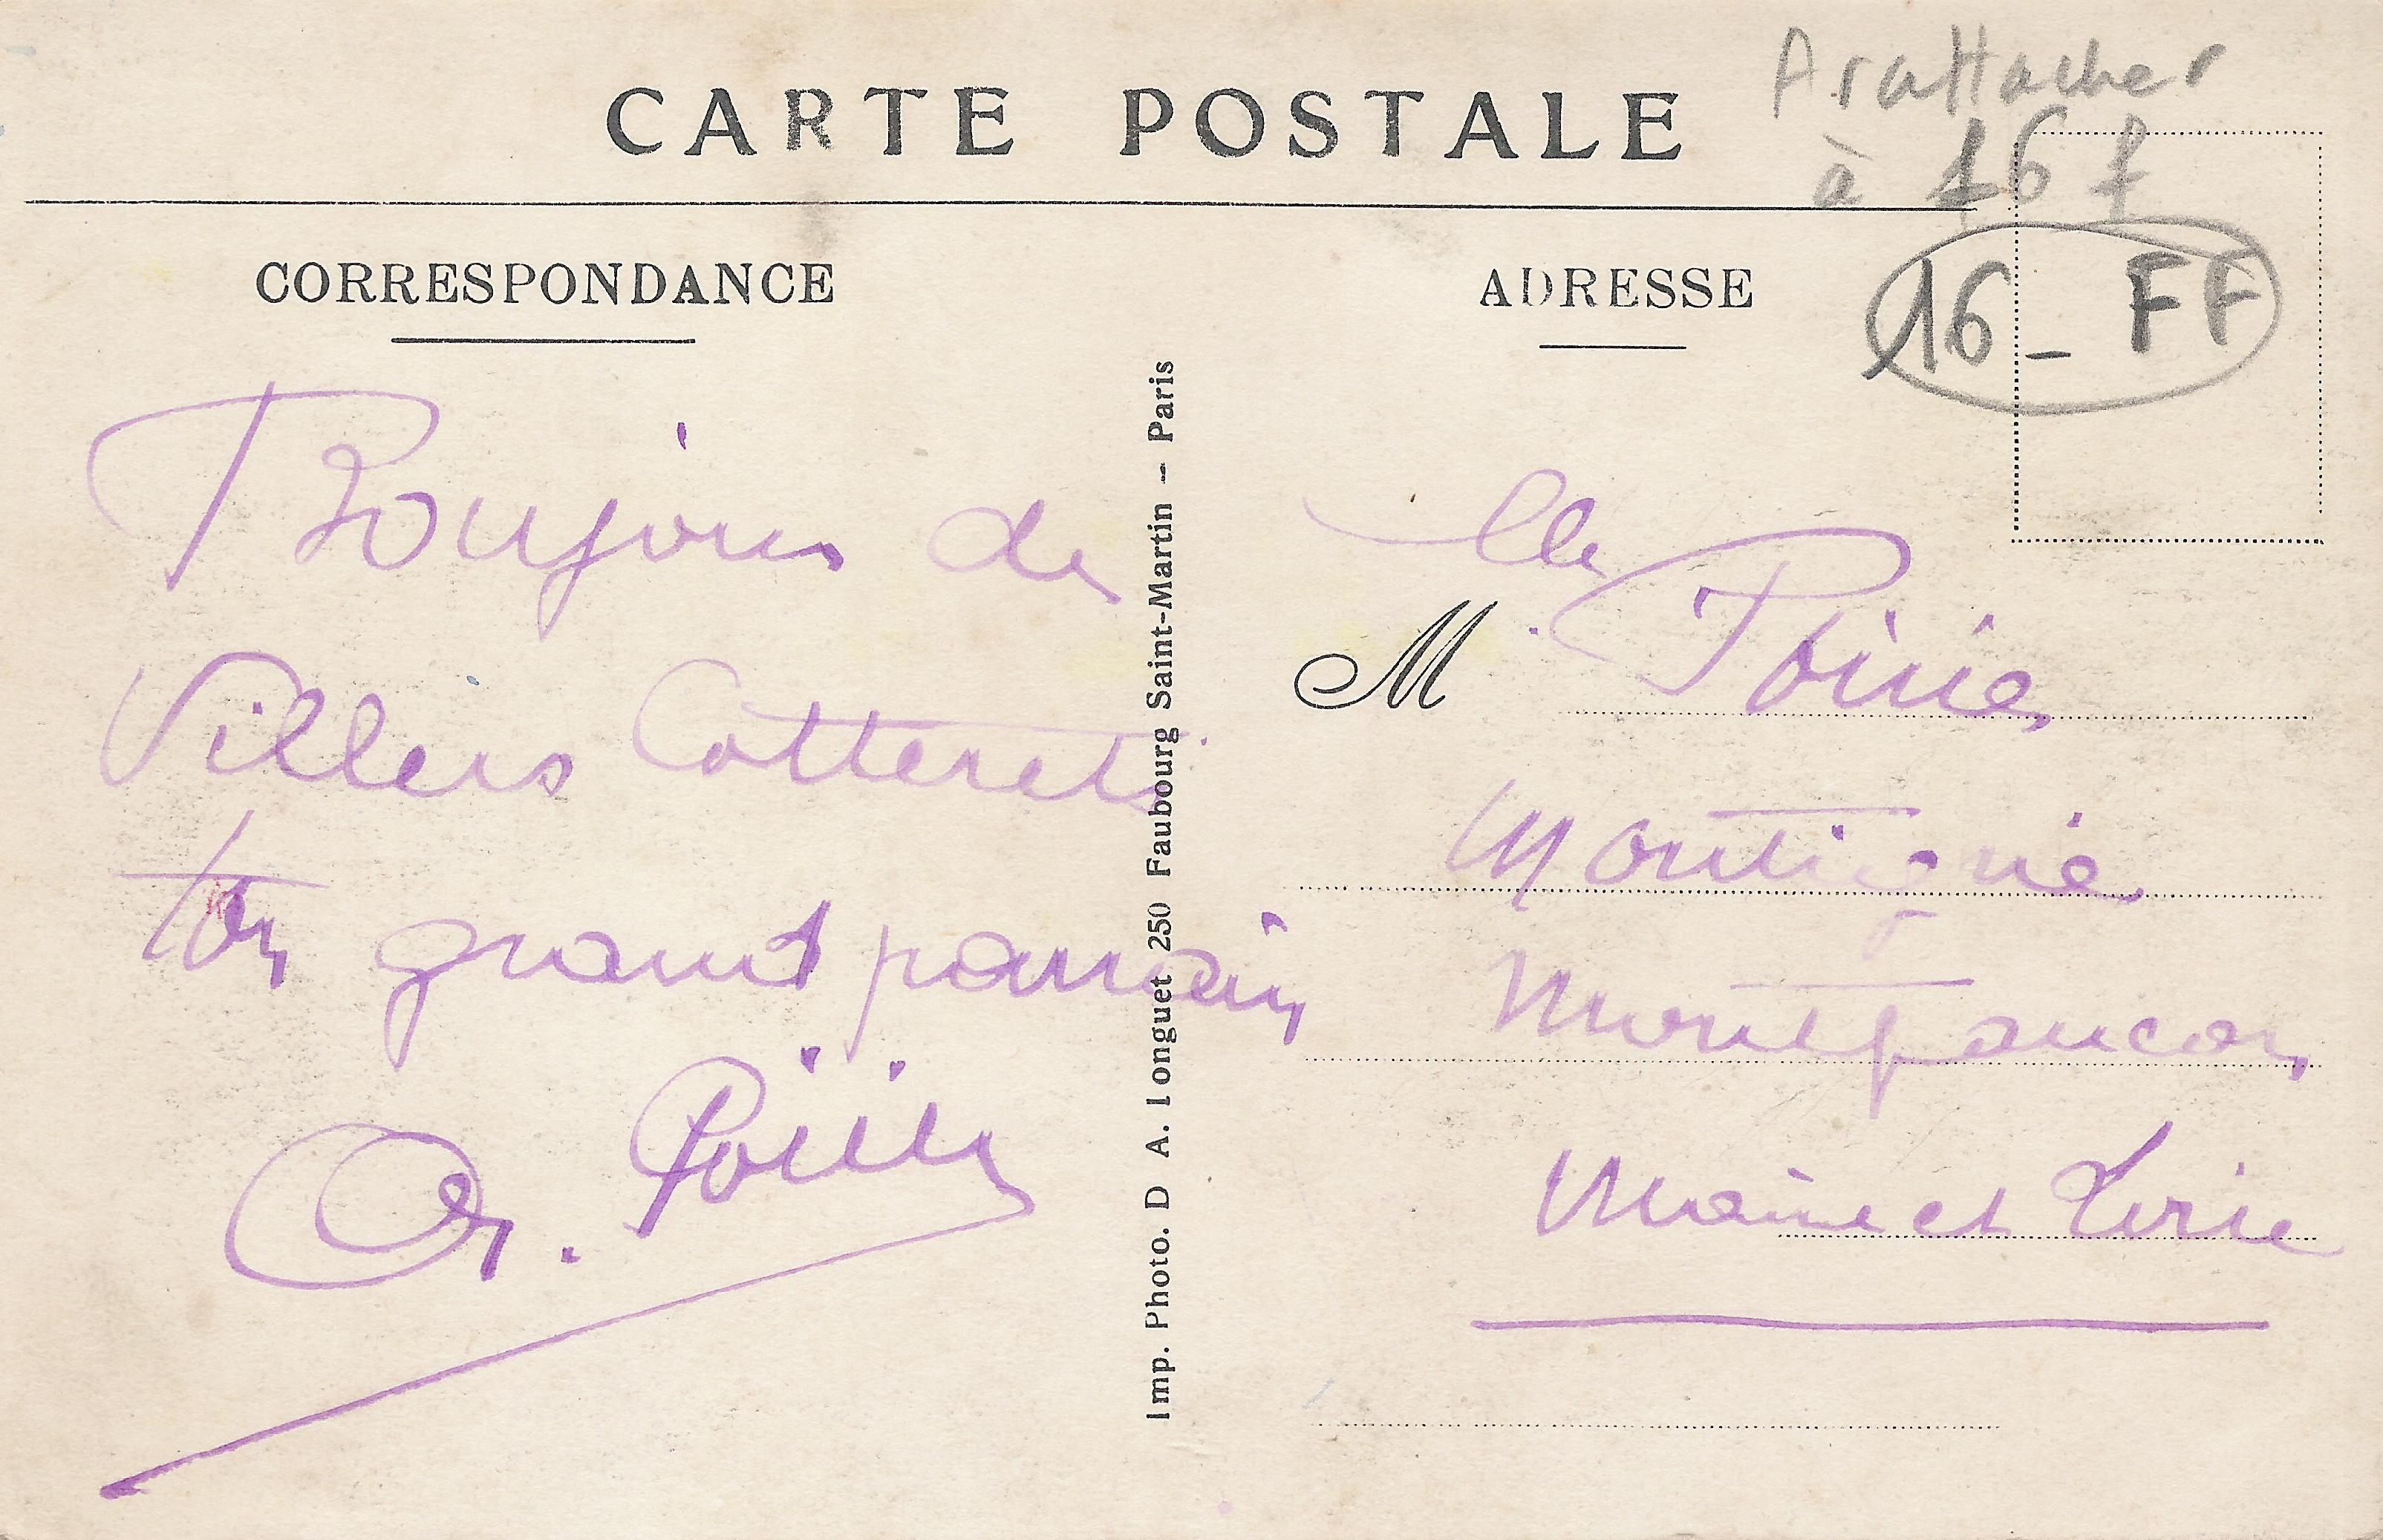 CARTE POSTALE
A rattacher
à 16 f
16 - FF
CORRESPONDANCE
ADRESSE
Bonjour de
Villers Cotterets
ton grand parrain
Imp. Photo. D A. Longuet 250 Faubourg Saint-Martin -- Paris
Mlle
Montigné
Montfaucon
Maine et Loire